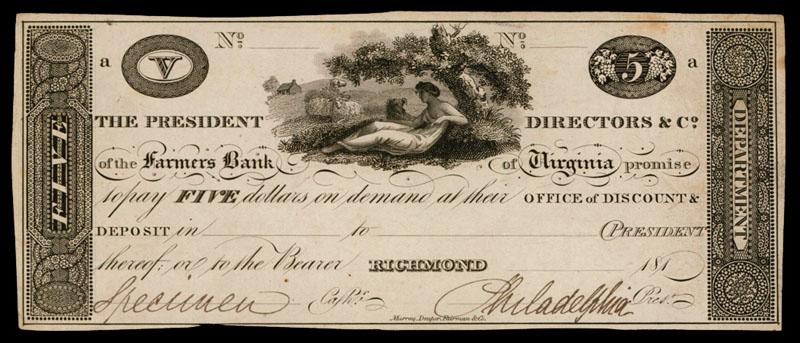 FIVE
No: No:
a V 5 a
THE PRESIDENT DIRECTORS & Co.
of the Farmers Bank of Virginia promise
to pay FIVE dollars on demand at their OFFICE of DISCOUNT &
DEPOSIT in to (PRESIDENT
thereof; or to the Bearer RICHMOND 181
Specimen Cashr. Philadelphia Prest.
Murray, Draper, Fairman & Co.
DEPARTMENT